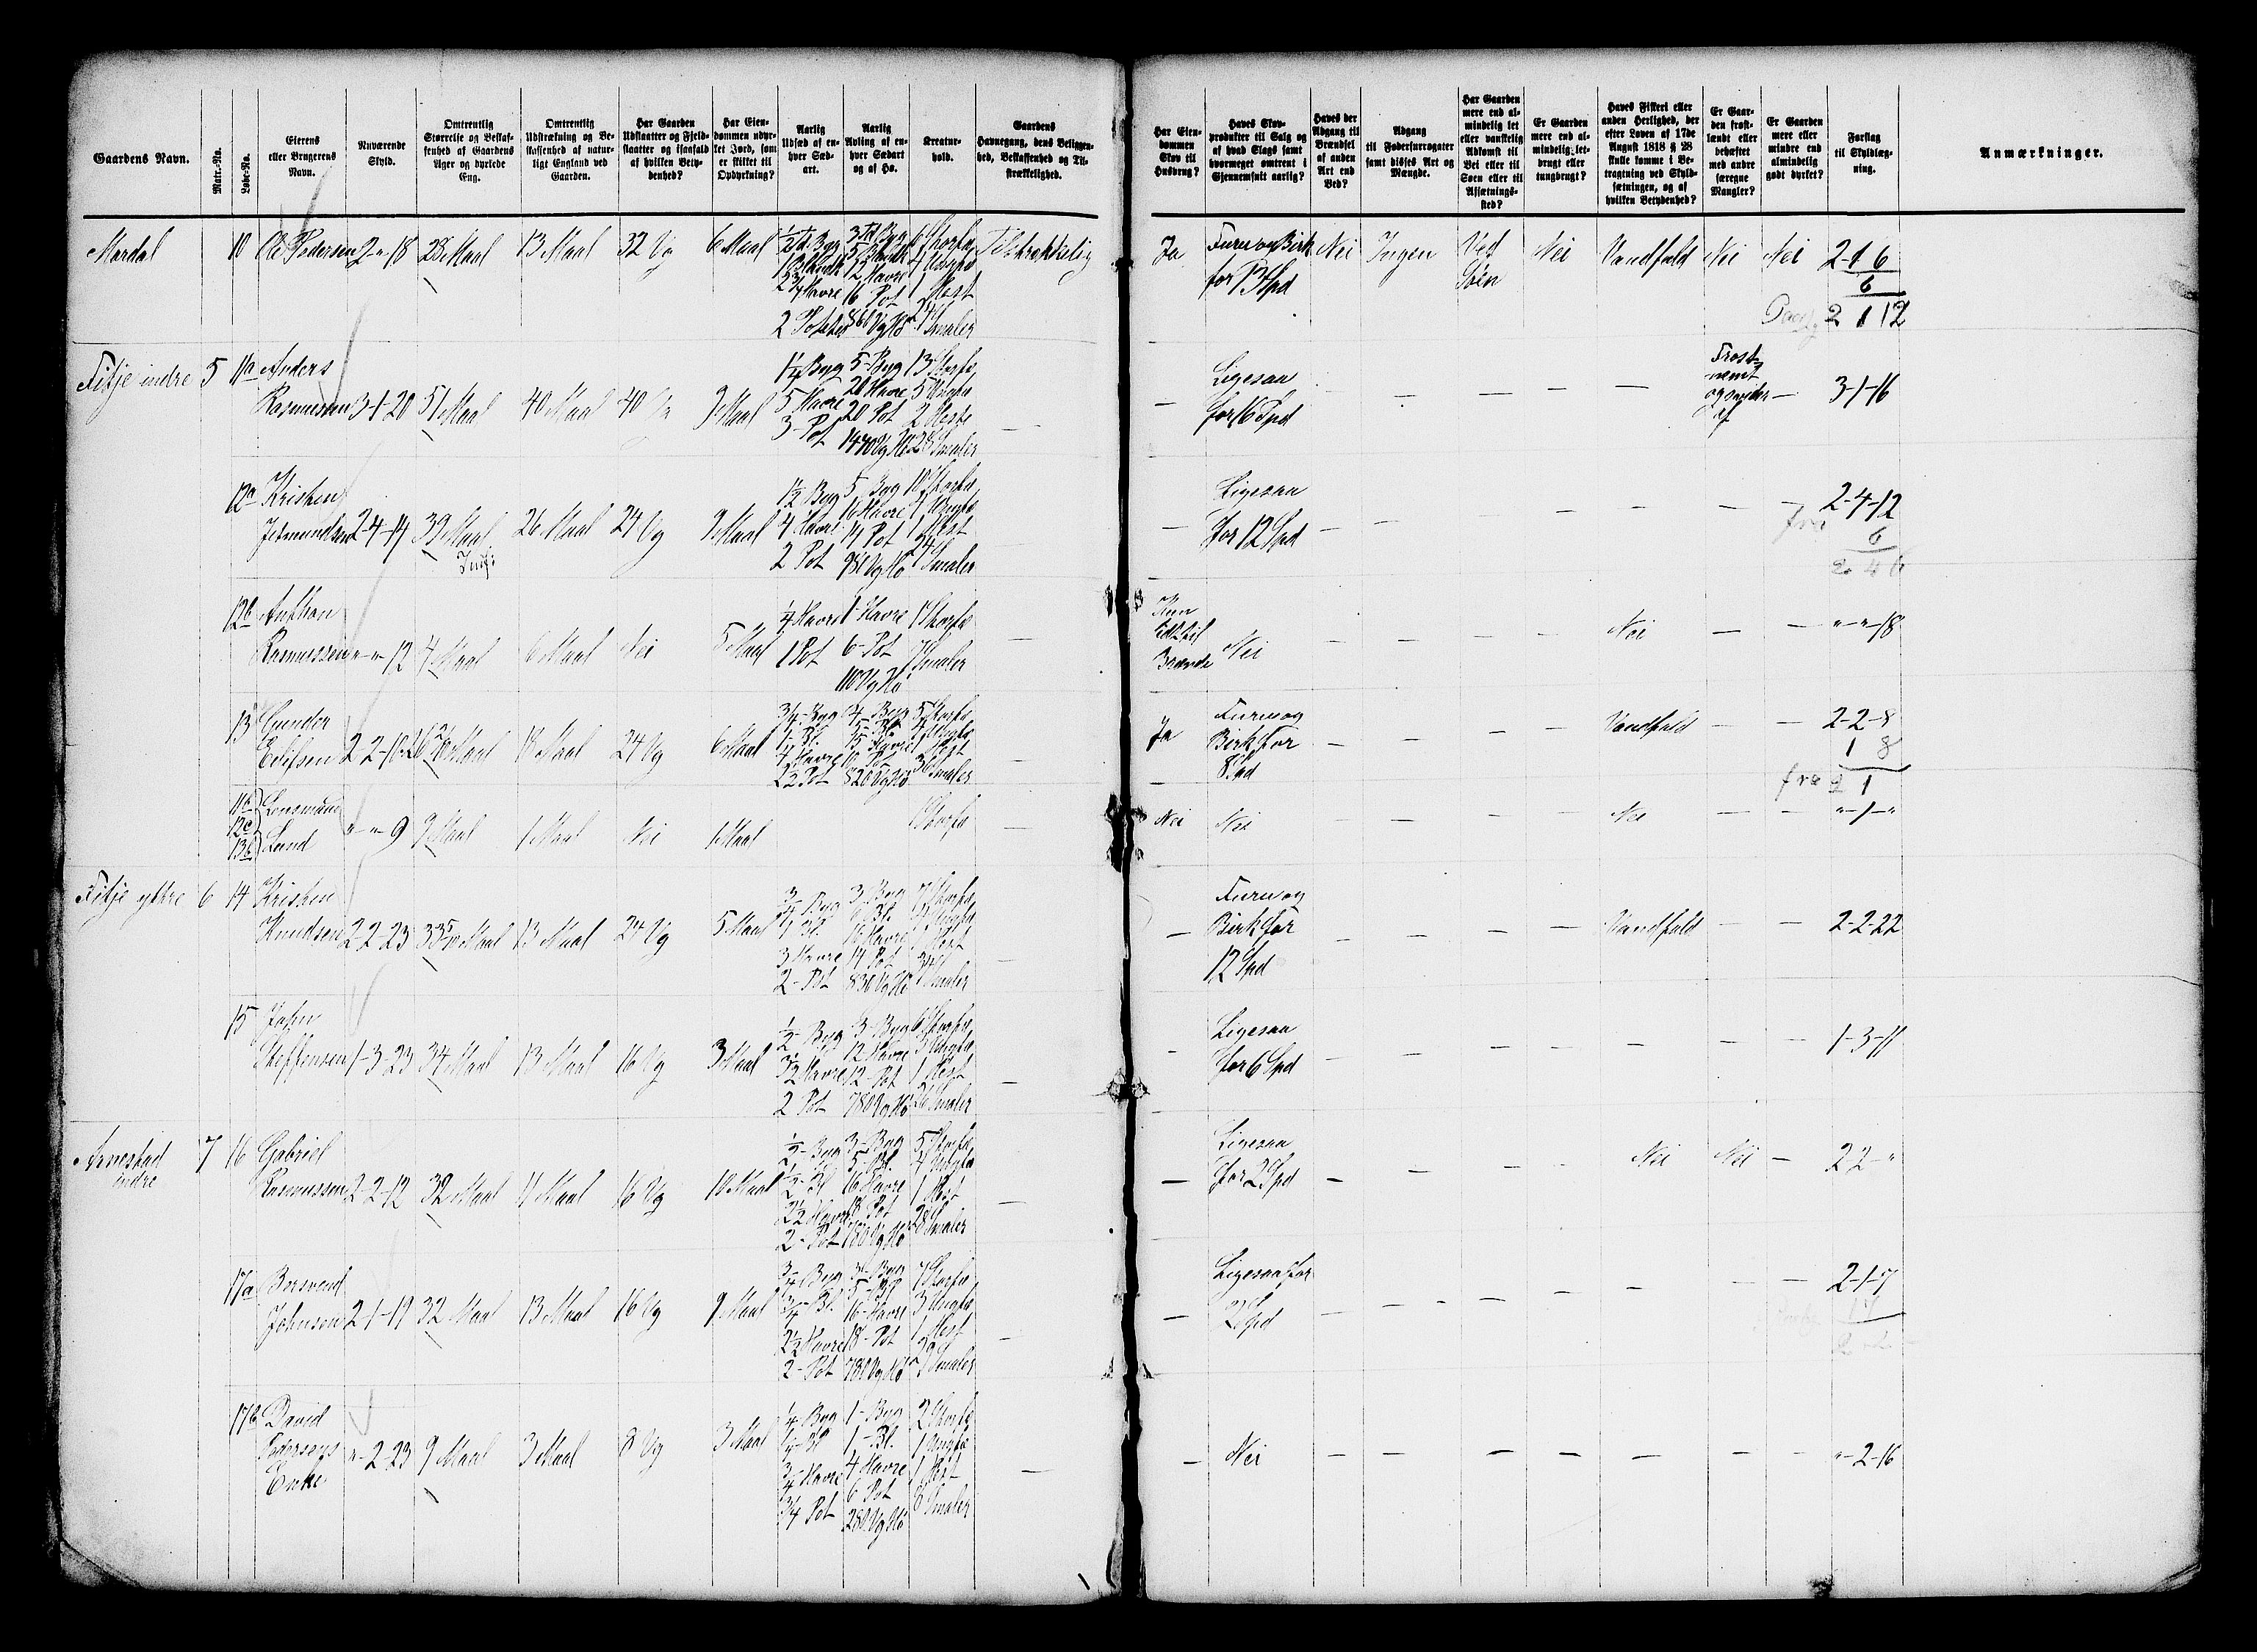 Gaardens Navn.
Matr.-No.
Løbe-No.
Eierens
eller Brugerens
Navn.
Nuværende
Skyld.
Omtrentlig
Størrelse og Beskaf-
fenhed af Gaardens
Ager og dyrkede
Eng.
Omtrentlig
Udstrækning og Be-
skaffenhed af natur-
ligt England ved
Gaarden.
Har Gaarden
Udslaatter og Fjeld-
slaatter og isaafald
af hvilken Bety-
denhed?
Har Eien-
dommen udyr-
ket Jord, som
er skikket til
Opdyrkning?
Aarlig
Udsæd af en-
hver Sæd-
art.
Aarlig
Avling af en-
hver Sædart
og af Hø.
Kreatur-
hold.
Gaardens
Havnegang, dens Beliggen-
hed, Beskaffenhed og Til-
strækkelighed.
Har Eien-
dommen
Skov til
Husbrug?
Haves Skov-
produkter til Salg og
af hvad Slags samt
hvormeget omtrent i
Gjennemsnit aarlig?
Haves der
Adgang til
Brændsel
af anden
Art end
Ved?
Adgang
til Fødersurrogater
samt disses Art og
Mængde.
Har Gaarden
mere end al-
mindelig let
eller vanskelig
Adkomst til
Vei eller til
Søen eller til
Afsætnings-
sted?
Er Gaarden
mere end al-
mindelig let-
brugt eller
tungbrugt?
Haves Fiskeri eller
anden Herlighed, der
efter Loven af 17de
August 1818 § 28
skulle komme i Be-
tragtning ved Skyld-
sætningen, og af
hvilken Betydenhed?
Er Gaar-
den frost-
lændt eller
behæftet
med andre
særegne
Mangler?
Er Gaarden
mere eller
mindre end
almindelig
godt dyrket?
Forslag
til Skyldlæg-
ning.
Anmærkninger.
Mardal 10 Ole Pedersen 2-"-18 28 Maal 13 Maal 32 Vg 6 Maal
2 3/4 Havre
16 Pot
1 Hest
Tilstrækkelig
Ja
Furu og Birk
for 13 Spd
Nei Ingen
Ved
Søen
Nei Vandfald Nei Nei 2-1-6
6
2 1 12
Fitje indre 5 11a Anders
Rasmussen 3-1-20 51 Maal 40 Maal 40 Vg 9 Maal
1 1/4 Byg 5-Byg 13 Storfæ
5 Havre 20 Havre 5 Ungfæ
3-Pot 20 Pot 2 Heste
1440 Vg Hø 28 Smaler
Ligesaa
for 16 Spd
Frost-
næmt
3-1-16
12a Kristen
Jetmundsen 2-4-14 39 Maal 26 Maal 24 Vg 9 Maal
1 1/2 Byg 5 Byg 10 Storfæ
4 Havre 16 Havre 4 Ungfæ
2 Pot 14 Pot 1 Hest
24 Smaler
Ligesaa
for 12 Spd
2-4-12
fra 6
2 4 6
12b Anthon
Rasmussen "-"-12 4 Maal 6 Maal Nei 5 Maal
1/4 Havre 1-Havre 1 Storfæ
1 Pot 6-Pot 7 Smaler
110 Vg Hø
Kun
lidt til
Brænde
Nei Nei "-"-18
13 Gunder
Eilifsen 2-2-10 18 Maal 24 Vg 6 Maal
3/4-Byg 4-Byg 5 Storfæ
4 Havre
820 Vg Hø
Smaler
Ja
Furu og
Birk for
8 Spd
Vandfald 2-2-8
1 8
fra 2 1
11b
12c
13b
Lensmand
Lund "-"-9 9 Maal 1 Maal Nei 1 Maal 1 Storfæ
Nei Nei Nei "-1-"
Fitje ytre 6 14 Kristen
Knudsen 2-2-23 33 5/10 Maal 13 Maal 24 Vg 5 Maal
3/4 Byg 3-Byg 7 Storfæ
3 Havre 14 Pot
2-Pot 830 Vg Hø Smaler
Furu og
Birk for
12 Spd
Vandfald 2-2-22
15 John
Steffensen 1-3-23 34 Maal 13 Maal 16 Vg 3 Maal
1/2-Byg 3-Byg 6 Storfæ
12 Havre 3 Ungfæ
3 1/2 Havre 12-Pot 1 Hest
2 Pot 780 Vg Hø 26 Smaler
Ligesaa
for 6 Spd
1-3-11
Arnestad
indre
7 16 Gabriel
Rasmussen 2-2-12 32 Maal 11 Maal 16 Vg 10 Maal
1/2-Byg 3-Byg 5 Storfæ
1/2-Bl 5-Bl. 4 Ungfæ
16 Havre 1 Hest
2 1/2 Havre 18 Pot
2-Pot 780 Vg Hø 28 Smaler
Ligesaa
for 2 Spd
Nei Nei 2 2-"
17a Borsvend
Johnsen 2-1-19 32 Maal 13 Maal 16 Vg 9 Maal
3/4-Byg 3-Byg 7 Storfæ
3/4-Bl. 5-Bl 3 Ungfæ
16-Havre
2 1/2 Havre 18-Pot 1 Hest
2-Pot 780 Vg Hø Smaler
Ligesaa for
2 Spd
2-1-7
17b David
Pedersens
Enke
"-2-23 9 Maal 3 Maal 8 Vg 3 Maal
1/4-Byg 1-Byg 2 Storfæ
1/4-Bl 1-Bl. 1 Ungfæ
3/4 Havre 4 Havre 1 Hest
3/4 Pot 6 Pot 8 Smaler
280 Vg Hø
Nei "-2-16